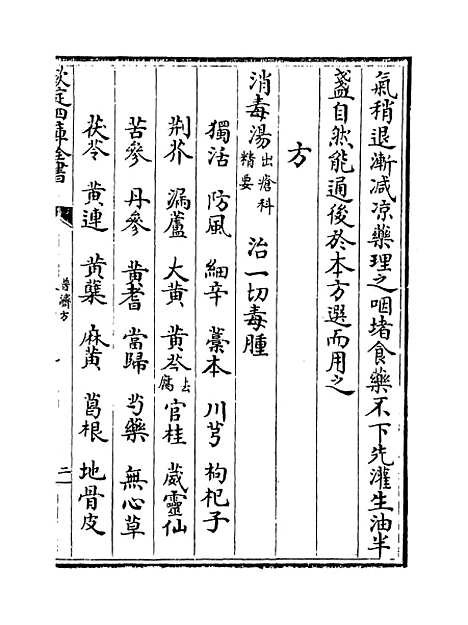 氣稍退漸减凉藥理之咽堵食藥不下先灌生油半
盞自然能通後於本方選而用之
方
消毒湯出瘡科精要　治一切毒腫
獨活　防風　細辛　藁本　川芎　枸杞子
荆芥　漏蘆　大黄　黄芩去腐　官桂　葳靈仙
苦參　丹參　黄耆　當歸　芍藥　無心草
茯苓　黄連　黄蘗　麻黄　葛根　地骨皮
欽定四庫全書
普濟方
二